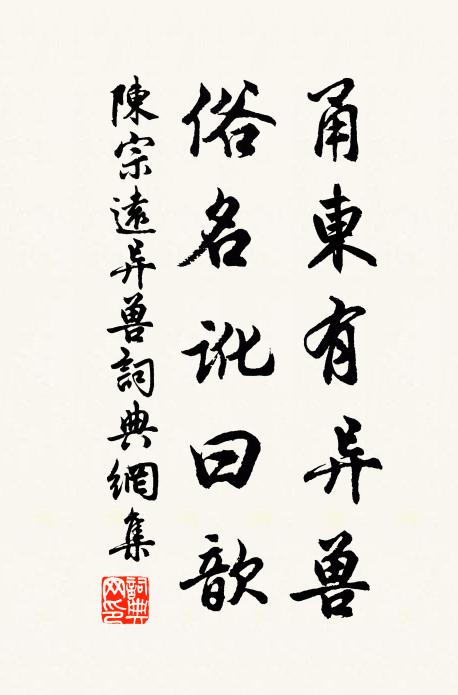 甬東有异兽
俗名讹曰歆
陳宗遠异兽詞典網集
詞典网印